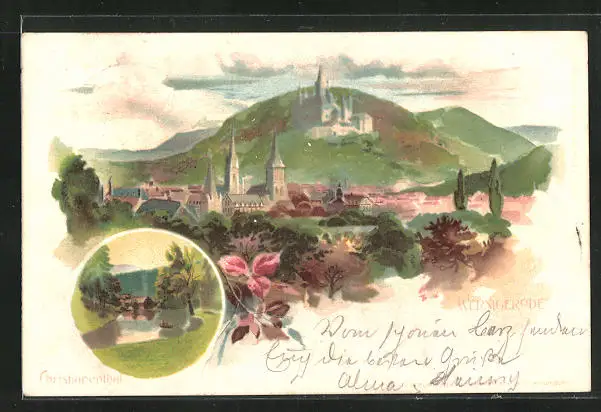 WERNIGERODE
Vom schönen Harz senden
Euch die besten Grüße
Alma
Christianenthal